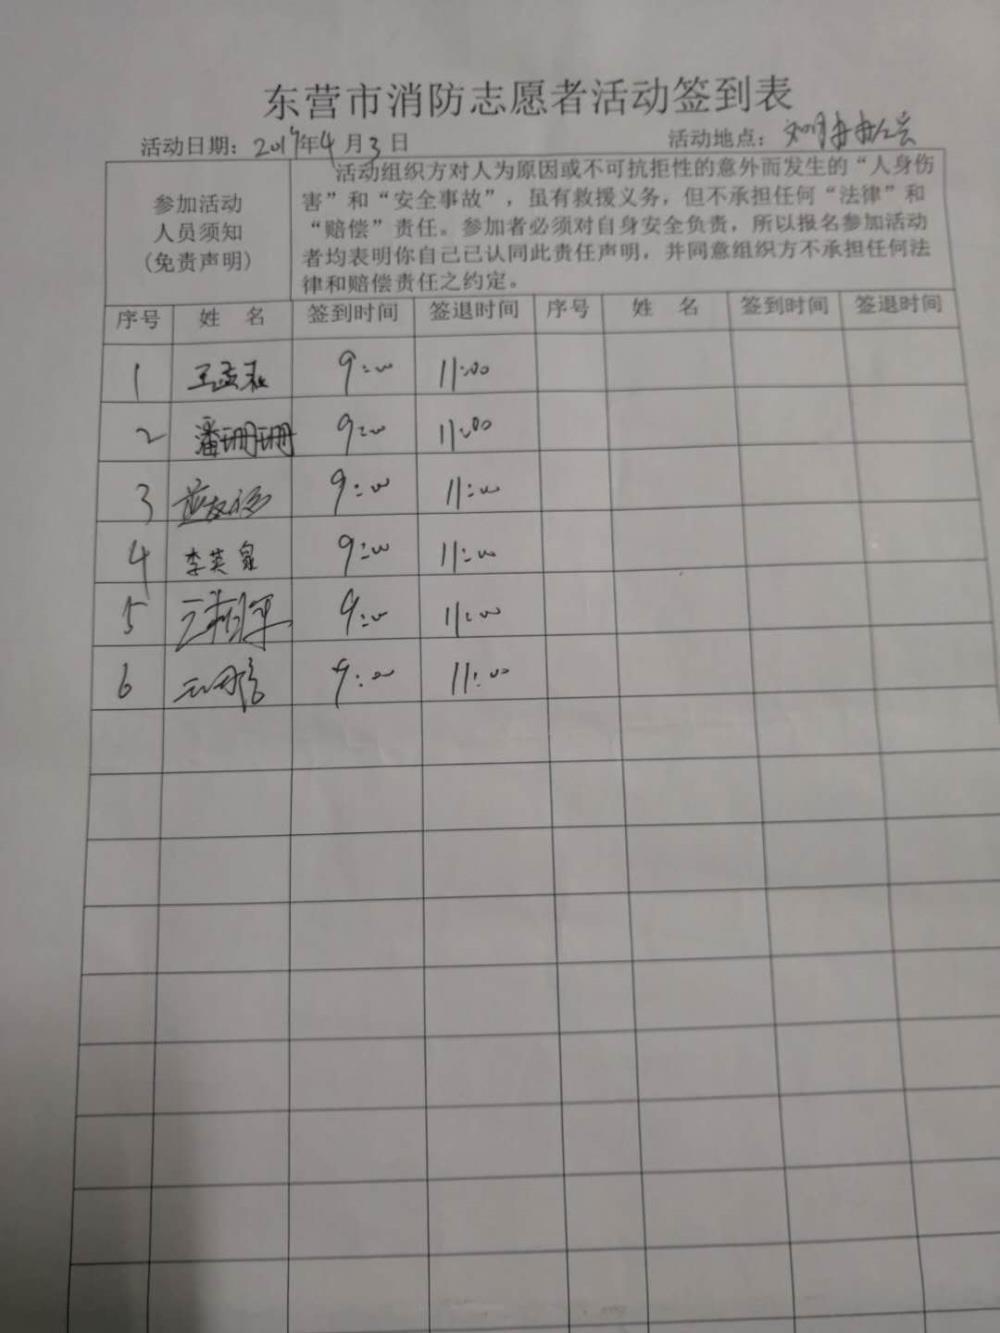 东营市消防志愿者活动签到表
活动日期：2019年4月3日 活动地点：
参加活动
人员须知
(免责声明)
活动组织方对人为原因或不可抗拒性的意外而发生的“人身伤
害”和“安全事故”，虽有救援义务，但不承担任何“法律”和
“赔偿”责任。参加者必须对自身安全负责，所以报名参加活动
者均表明你自己已认同此责任声明，并同意组织方不承担任何法
律和赔偿责任之约定。
序号 姓 名 签到时间 签退时间 序号 姓 名 签到时间 签退时间
1 9:00 11:00
2 潘珊珊 9:00 11:00
3 9:00 11:00
4 李英泉 9:00 11:00
5 9:00 11:00
6 9:00 11:00